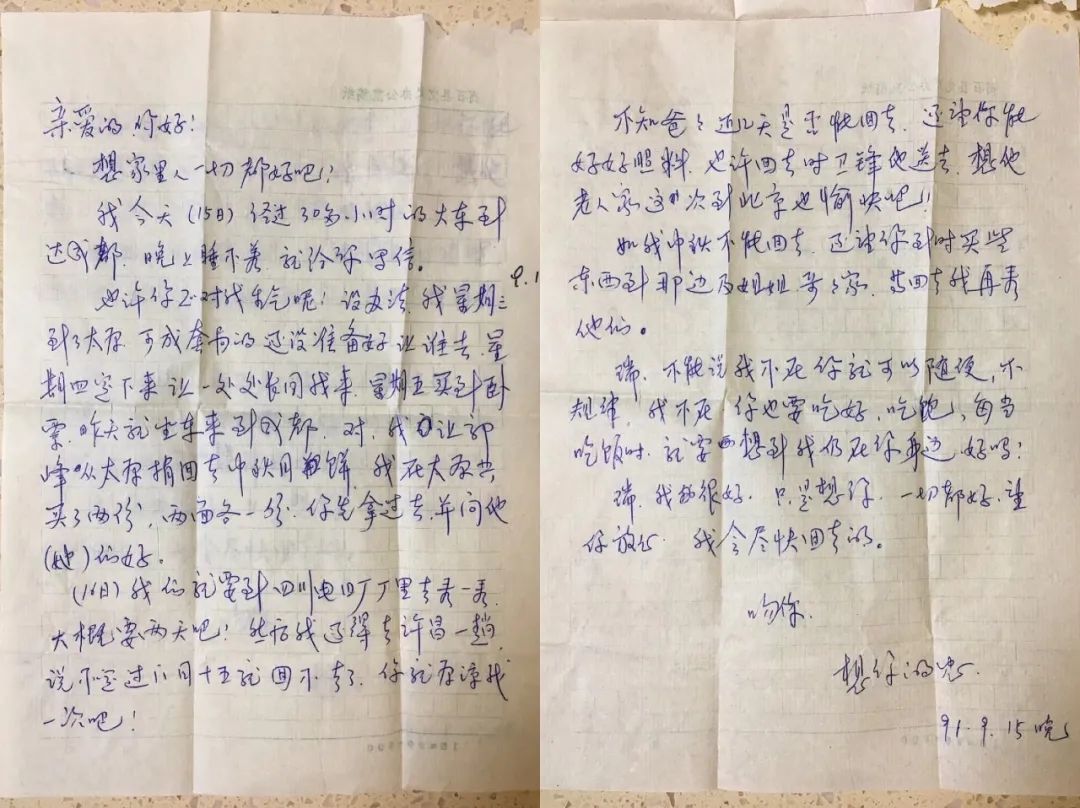 亲爱的 你好!
想家里人一切都好吧!
我今天(15日)经过30多小时的火车到
达成都,晚上睡不着,就给你写信。
也许你还对我生气呢!没办法,我星期三
到了太原,可成套局的还没准备好让谁去,星
期四定下来让一处处长同我来,星期五买到卧
票,昨天就坐车来到成都,对,我已让郭
峰从太原捎回去中秋月饼,我在太原共
买了两份,两面各一份,你先拿过去,并问他
(她)们好。
(16日)我们就要到四川电旧厂厂里去看一看,
大概要两天吧!然后我还得去许昌一趟,
说不定过八月十五就回不去了,你就原谅我
一次吧!
9.1
不知爸爸近几天是否能回去,还望你能
好好照料,也许回去时卫锋也送去,想他
老人家这次到北京也愉快吧!
如我中秋不能回去,还望你到时买些
东西到那边及姐姐哥哥家,等回去我再看
他们。
瑞,不能说我不在你就可以随便,不
规律,我不在你也要吃好,吃饱,每当
吃饭时,就要想到我仍在你身边,好吗?
瑞,我都很好,只是想你,一切都好,望
你放心,我会尽快回去的。
吻你.
想你的忠.
91.9.15晚